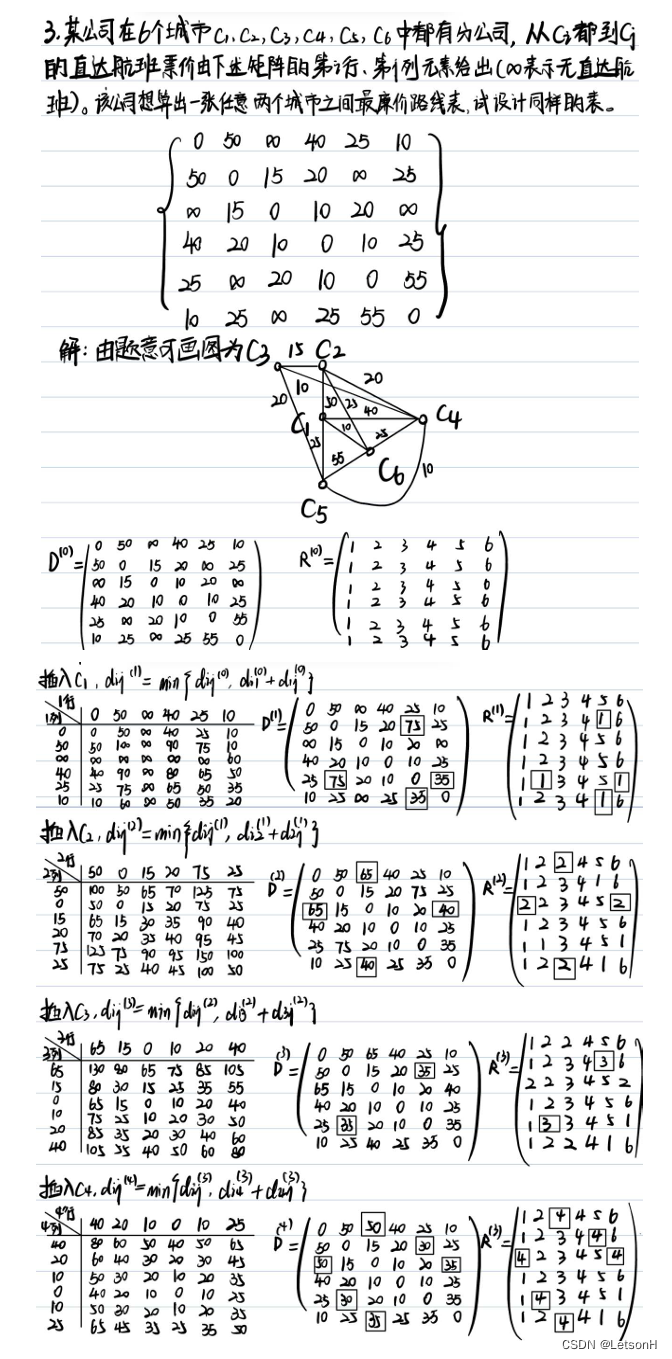 3.某公司在6个城市C1,C2,C3,C4,C5,C6中都有分公司,从Ci都到Cj
的直达航班票价由下述矩阵的第i行、第j列元素给出(∞表示无直达航
班)。该公司想算出一张任意两个城市之间最廉价路线表,试设计同样的表。
0 50 ∞ 40 25 10
50 0 15 20 ∞ 25
∞ 15 0 10 20 ∞
40 20 10 0 10 25
25 ∞ 20 10 0 55
10 25 ∞ 25 55 0
解:由题意可画图为
C3 15 C2
20 10 20
50 25 40
C1 10 25 C4
25 55 C6 10
C5
D(0)= R(0)=
0 50 ∞ 40 25 10 1 2 3 4 5 6
50 0 15 20 ∞ 25 1 2 3 4 5 6
∞ 15 0 10 20 ∞ 1 2 3 4 5 6
40 20 10 0 10 25 1 2 3 4 5 6
25 ∞ 20 10 0 55 1 2 3 4 5 6
10 25 ∞ 25 55 0 1 2 3 4 5 6
插入C1,dij(1)=min{dij(0),di1(0)+d1j(0)}
1行 1列 D(1)= R(1)=
0 50 ∞ 40 25 10 0 50 ∞ 40 25 10 1 2 3 4 5 6
0 0 50 ∞ 40 25 10 50 0 15 20 75 25 1 2 3 4 1 6
50 50 100 ∞ 90 75 10 ∞ 15 0 10 20 ∞ 1 2 3 4 5 6
∞ ∞ ∞ ∞ ∞ ∞ 60 40 20 10 0 10 25 1 2 3 4 5 6
40 40 90 ∞ 80 65 50 25 75 20 10 0 35 1 1 3 4 5 1
25 25 75 ∞ 65 50 35 10 25 ∞ 25 35 0 1 2 3 4 1 6
10 10 60 ∞ 50 35 20
插入C2,dij(2)=min{dij(1),di2(1)+d2j(1)}
2行 2列 D(2)= R(2)=
50 0 15 20 75 25 0 50 65 40 25 10 1 2 2 4 5 6
50 100 50 65 70 125 75 50 0 15 20 75 25 1 2 3 4 1 6
0 50 0 15 20 75 25 65 15 0 10 20 40 2 2 3 4 5 2
15 65 15 30 35 90 40 40 20 10 0 10 25 1 2 3 4 5 6
20 70 20 35 40 95 45 25 75 20 10 0 35 1 1 3 4 5 1
75 125 75 90 95 150 100 10 25 40 25 35 0 1 2 2 4 1 6
25 75 25 40 45 100 50
插入C3,dij(3)=min{dij(2),di3(2)+d3j(2)}
3行 3列 D(3)= R(3)=
65 15 0 10 20 40 0 50 65 40 25 10 1 2 2 4 5 6
65 130 80 65 75 85 105 50 0 15 20 35 25 1 2 3 4 3 6
15 80 30 15 25 35 55 65 15 0 10 20 40 2 2 3 4 5 2
0 65 15 0 10 20 40 40 20 10 0 10 25 1 2 3 4 5 6
10 75 25 10 20 30 50 25 35 20 10 0 35 1 3 3 4 5 1
20 85 35 20 30 40 60 10 25 40 25 35 0 1 2 2 4 1 6
40 105 55 40 50 60 80
插入C4,dij(4)=min{dij(3),di4(3)+d4j(3)}
4行 4列 D(4)= R(3)=
40 20 10 0 10 25 0 50 50 40 25 10 1 2 4 4 5 6
40 80 60 50 40 50 65 50 0 15 20 30 25 1 2 3 4 4 6
20 60 40 30 20 30 45 50 15 0 10 20 35 4 2 3 4 5 4
10 50 30 20 10 20 35 40 20 10 0 10 25 1 2 3 4 5 6
0 40 20 10 0 10 25 25 30 20 10 0 35 1 4 3 4 5 1
10 50 30 20 10 20 35 10 25 35 25 35 0 1 2 4 4 1 6
25 65 45 35 25 35 50
CSDN @LetsonH